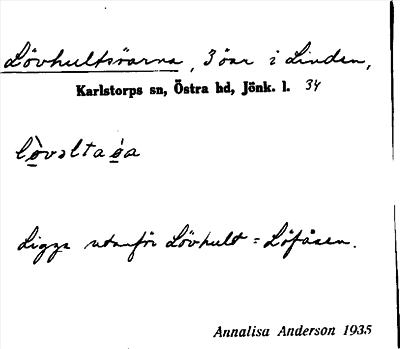 Lövhultsöarna, 3 öar i Linden,
Karlstorps sn, Östra hd, Jönk. l. 34
Ligga utanför Lövhult = Löfåsen.
Annalisa Anderson 1935